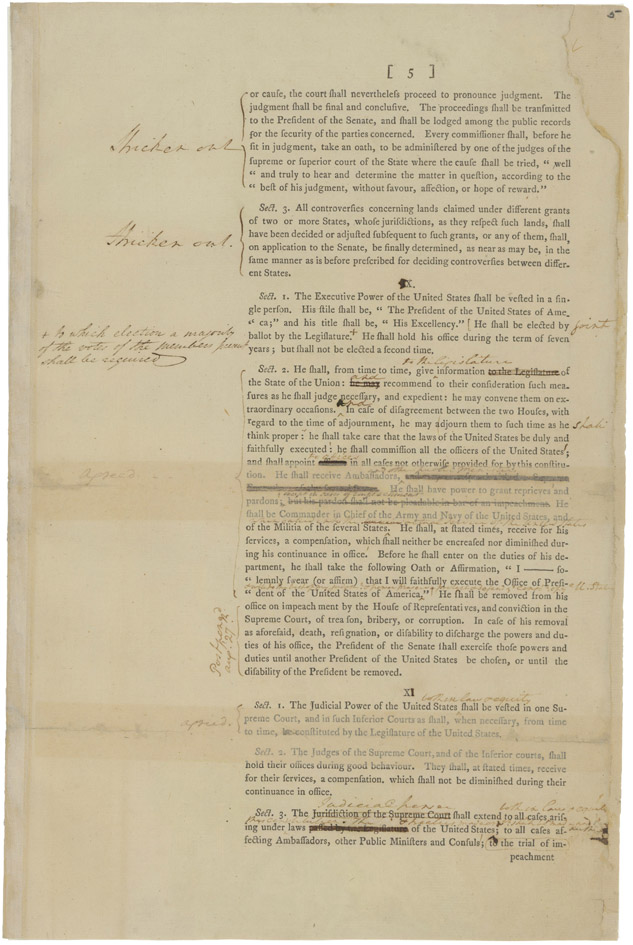 5
[ 5 ]
or cause, the court shall nevertheless proceed to pronounce judgment. The
judgment shall be final and conclusive. The proceedings shall be transmitted
to the President of the Senate, and shall be lodged among the public records
for the security of the parties concerned. Every commissioner shall, before he
Stricken out
sit in judgment, take an oath, to be administered by one of the judges of the
supreme or superior court of the State where the cause shall be tried, " well
" and truly to hear and determine the matter in question, according to the
" best of his judgment, without favour, affection, or hope of reward."
Sect. 3. All controversies concerning lands claimed under different grants
of two or more States, whose jurisdictions, as they respect such lands, shall
Stricken out.
have been decided or adjusted subsequent to such grants, or any of them, shall,
on application to the Senate, be finally determined, as near as may be, in the
same manner as is before prescribed for deciding controversies between differ-
ent States.
X.
Sect. 1. The Executive Power of the United States shall be vested in a sin-
gle person. His stile shall be, " The President of the United States of Ame-
" ca;" and his title shall be, " His Excellency." He shall be elected by joint
+ to which election a majority
of the votes of the members present
shall be required
ballot by the Legislature.+ He shall hold his office during the term of seven
years ; but shall not be elected a second time.
to the legislature
Sect. 2. He shall, from time to time, give information to the Legislature of
and
the State of the Union: he may recommend to their consideration such mea-
sures as he shall judge necessary, and expedient: he may convene them on ex-
and
traordinary occasions. In case of disagreement between the two Houses, with
regard to the time of adjournment, he may adjourn them to such time as he
think proper: he shall take care that the laws of the United States be duly and
faithfully executed: he shall commission all the officers of the United States;
and shall appoint in all cases not otherwise provided for by this constitu-
agreed
tion. He shall receive Ambassadors,
He shall have power to grant reprieves and
except in cases of impeachment
pardons; but his pardon shall not be pleadable in bar of an impeachment. He
shall be Commander in Chief of the Army and Navy of the United States, and
of the Militia of the several States. He shall, at stated times, receive for his
services, a compensation, which shall neither be encreased nor diminished dur-
ing his continuance in office. Before he shall enter on the duties of his de-
partment, he shall take the following Oath or Affirmation, " I —— so-
" lemnly swear (or affirm) that I will faithfully execute the Office of Presi-
" dent of the United States of America," He shall be removed from his
Postponed
Aug. 27.
office on impeachment by the House of Representatives, and conviction in the
Supreme Court, of treason, bribery, or corruption. In case of his removal
as aforesaid, death, resignation, or disability to discharge the powers and du-
ties of his office, the President of the Senate shall exercise those powers and
duties until another President of the United States be chosen, or until the
disability of the President be removed.
XI
both in law & equity
Sect. 1. The Judicial Power of the United States shall be vested in one Su-
agreed.
preme Court, and in such Inferior Courts as shall, when necessary, from time
to time, be constituted by the Legislature of the United States.
Sect. 2. The Judges of the Supreme Court, and of the inferior courts, shall
hold their offices during good behaviour. They shall, at stated times, receive
for their services, a compensation, which shall not be diminished during their
continuance in office.
Judicial power
Sect. 3. The Jurisdiction of the Supreme Court shall extend to all cases aris-
ing under laws passed by the Legislature of the United States; to all cases af-
fecting Ambassadors, other Public Ministers and Consuls; to the trial of im-
peachment